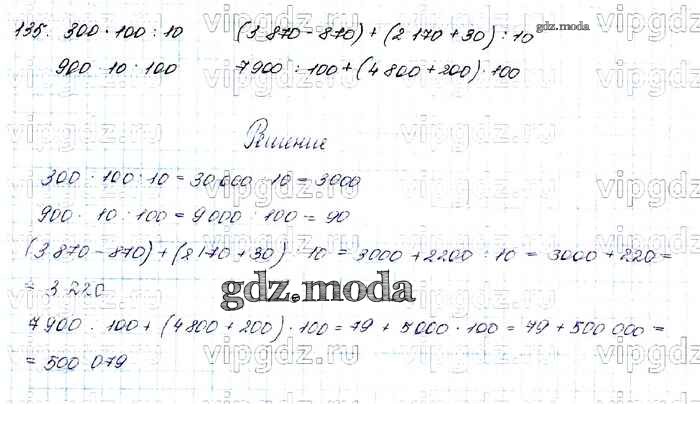 135. 300 · 100 : 10 (3 870 - 870) + (2 170 + 30) : 10
900 · 10 : 100 7 900 : 100 + (4 800 + 200) · 100
Решение
300 · 100 : 10 = 30 000 : 10 = 3000
900 · 10 : 100 = 9 000 : 100 = 90
(3 870 - 870) + (2 170 + 30) : 10 = 3000 + 2200 : 10 = 3000 + 220 =
= 3 220
7 900 : 100 + (4 800 + 200) · 100 = 79 + 5 000 · 100 = 79 + 500 000 =
= 500 079
gdz.moda
gdz.moda
vipgdz.com